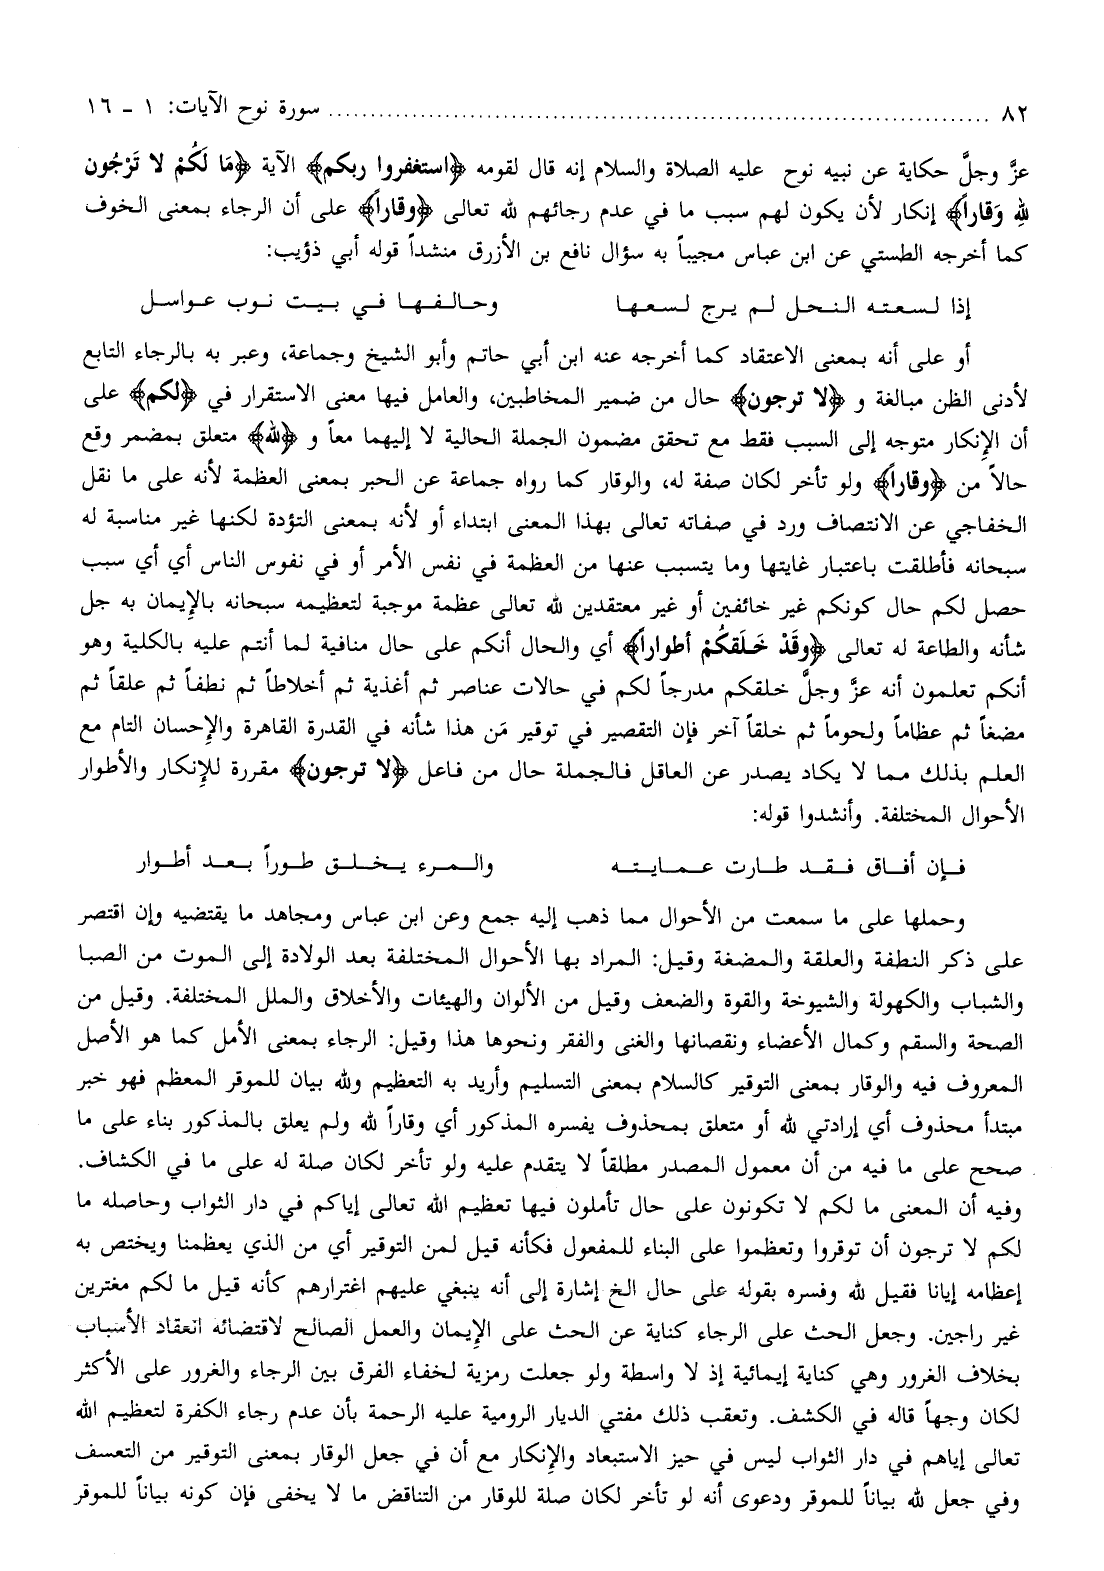 ٨٢ ........................................ سورة نوح الآيات: ١ ـ ١٦
عزَّ وجلَّ حكاية عن نبيه نوح عليه الصلاة والسلام إنه قال لقومه ﴿استغفروا ربكم﴾ الآية ﴿مَا لَكُمْ لا تَرْجُون
لله وَقاراً﴾ إنكار لأن يكون لهم سبب ما في عدم رجائهم لله تعالى ﴿وقاراً﴾ على أن الرجاء بمعنى الخوف
كما أخرجه الطستي عن ابن عباس مجيباً به سؤال نافع بن الأزرق منشداً قوله أبي ذؤيب:
إذا لسعته النحل لم يرج لسعها وحالفها في بيت نوب عواسل
أو على أنه بمعنى الاعتقاد كما أخرجه عنه ابن أبي حاتم وأبو الشيخ وجماعة، وعبر به بالرجاء التابع
لأدنى الظن مبالغة و ﴿لا ترجون﴾ حال من ضمير المخاطبين، والعامل فيها معنى الاستقرار في ﴿لكم﴾ على
أن الإنكار متوجه إلى السبب فقط مع تحقق مضمون الجملة الحالية لا إليهما معاً و ﴿لله﴾ متعلق بمضمر وقع
حالاً من ﴿وقاراً﴾ ولو تأخر لكان صفة له، والوقار كما رواه جماعة عن الحبر بمعنى العظمة لأنه على ما نقل
الخفاجي عن الانتصاف ورد في صفاته تعالى بهذا المعنى ابتداء أو لأنه بمعنى التؤدة لكنها غير مناسبة له
سبحانه فأطلقت باعتبار غايتها وما يتسبب عنها من العظمة في نفس الأمر أو في نفوس الناس أي أي سبب
حصل لكم حال كونكم غير خائفين أو غير معتقدين لله تعالى عظمة موجبة لتعظيمه سبحانه بالإيمان به جل
شأنه والطاعة له تعالى ﴿وقَدْ خَلَقكُمْ أطواراً﴾ أي والحال أنكم على حال منافية لما أنتم عليه بالكلية وهو
أنكم تعلمون أنه عزَّ وجلَّ خلقكم مدرجاً لكم في حالات عناصر ثم أغذية ثم أخلاطاً ثم نطفاً ثم علقاً ثم
مضغاً ثم عظاماً ولحوماً ثم خلقاً آخر فإن التقصير في توقير مَن هذا شأنه في القدرة القاهرة والإحسان التام مع
العلم بذلك مما لا يكاد يصدر عن العاقل فالجملة حال من فاعل ﴿لا ترجون﴾ مقررة للإنكار والأطوار
الأحوال المختلفة. وأنشدوا قوله:
فإن أفاق فقد طارت عمايته والمرء يخلق طوراً بعد أطوار
وحملها على ما سمعت من الأحوال مما ذهب إليه جمع وعن ابن عباس ومجاهد ما يقتضيه وإن اقتصر
على ذكر النطفة والعلقة والمضغة وقيل: المراد بها الأحوال المختلفة بعد الولادة إلى الموت من الصبا
والشباب والكهولة والشيوخة والقوة والضعف وقيل من الألوان والهيئات والأخلاق والملل المختلفة. وقيل من
الصحة والسقم وكمال الأعضاء ونقصانها والغنى والفقر ونحوها هذا وقيل: الرجاء بمعنى الأمل كما هو الأصل
المعروف فيه والوقار بمعنى التوقير كالسلام بمعنى التسليم وأريد به التعظيم ولله بيان للموقر المعظم فهو خبر
مبتدأ محذوف أي إرادتي لله أو متعلق بمحذوف يفسره المذكور أي وقاراً لله ولم يعلق بالمذكور بناء على ما
صحح على ما فيه من أن معمول المصدر مطلقاً لا يتقدم عليه ولو تأخر لكان صلة له على ما في الكشاف.
وفيه أن المعنى ما لكم لا تكونون على حال تأملون فيها تعظيم الله تعالى إياكم في دار الثواب وحاصله ما
لكم لا ترجون أن توقروا وتعظموا على البناء للمفعول فكأنه قيل لمن التوقير أي من الذي يعظمنا ويختص به
إعظامه إيانا فقيل لله وفسره بقوله على حال الخ إشارة إلى أنه ينبغي عليهم اغترارهم كأنه قيل ما لكم مغترين
غير راجين. وجعل الحث على الرجاء كناية عن الحث على الإيمان والعمل الصالح لاقتضائه انعقاد الأسباب
بخلاف الغرور وهي كناية إيمائية إذ لا واسطة ولو جعلت رمزية لخفاء الفرق بين الرجاء والغرور على الأكثر
لكان وجهاً قاله في الكشف. وتعقب ذلك مفتي الديار الرومية عليه الرحمة بأن عدم رجاء الكفرة لتعظيم الله
تعالى إياهم في دار الثواب ليس في حيز الاستبعاد والإنكار مع أن في جعل الوقار بمعنى التوقير من التعسف
وفي جعل لله بياناً للموقر ودعوى أنه لو تأخر لكان صلة للوقار من التناقض ما لا يخفى فإن كونه بياناً للموقر